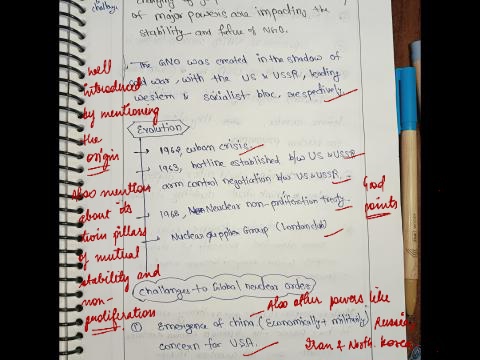 challeng
of major powers are impacting the
stability and future of NGO.
The GNO was created in the shadow of
cold war, with the US & USSR, leading
western & socialist bloc, respectively.
well
introduced
by mentioning
the
origin
Evolution
→ 1962, cuban crisis
→ 1963, hotline established b/w US & USSR
arm control negotiation b/w US & USSR
→ 1968, Nuclear non-proliferation treaty
→ Nuclear supplier Group (London club)
Also mention
about its
twin pillars
of mutual
stability and
non-
proliferation
Good
points
challenges to Global nuclear order
① Emergence of china (Economically + militarily)
concern for USA.
- Also other powers like
Russia,
Iran & North Korea